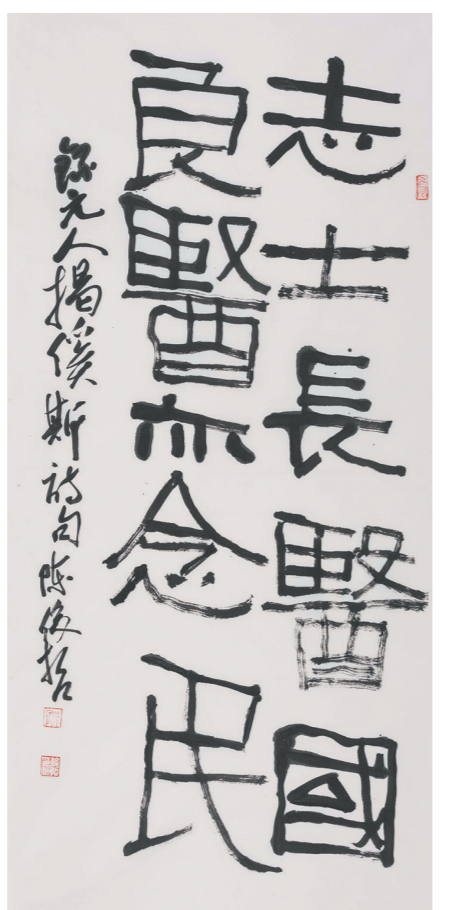 志士長醫國
良醫亦念民
錄元人揭傒斯詩句陳俊哲